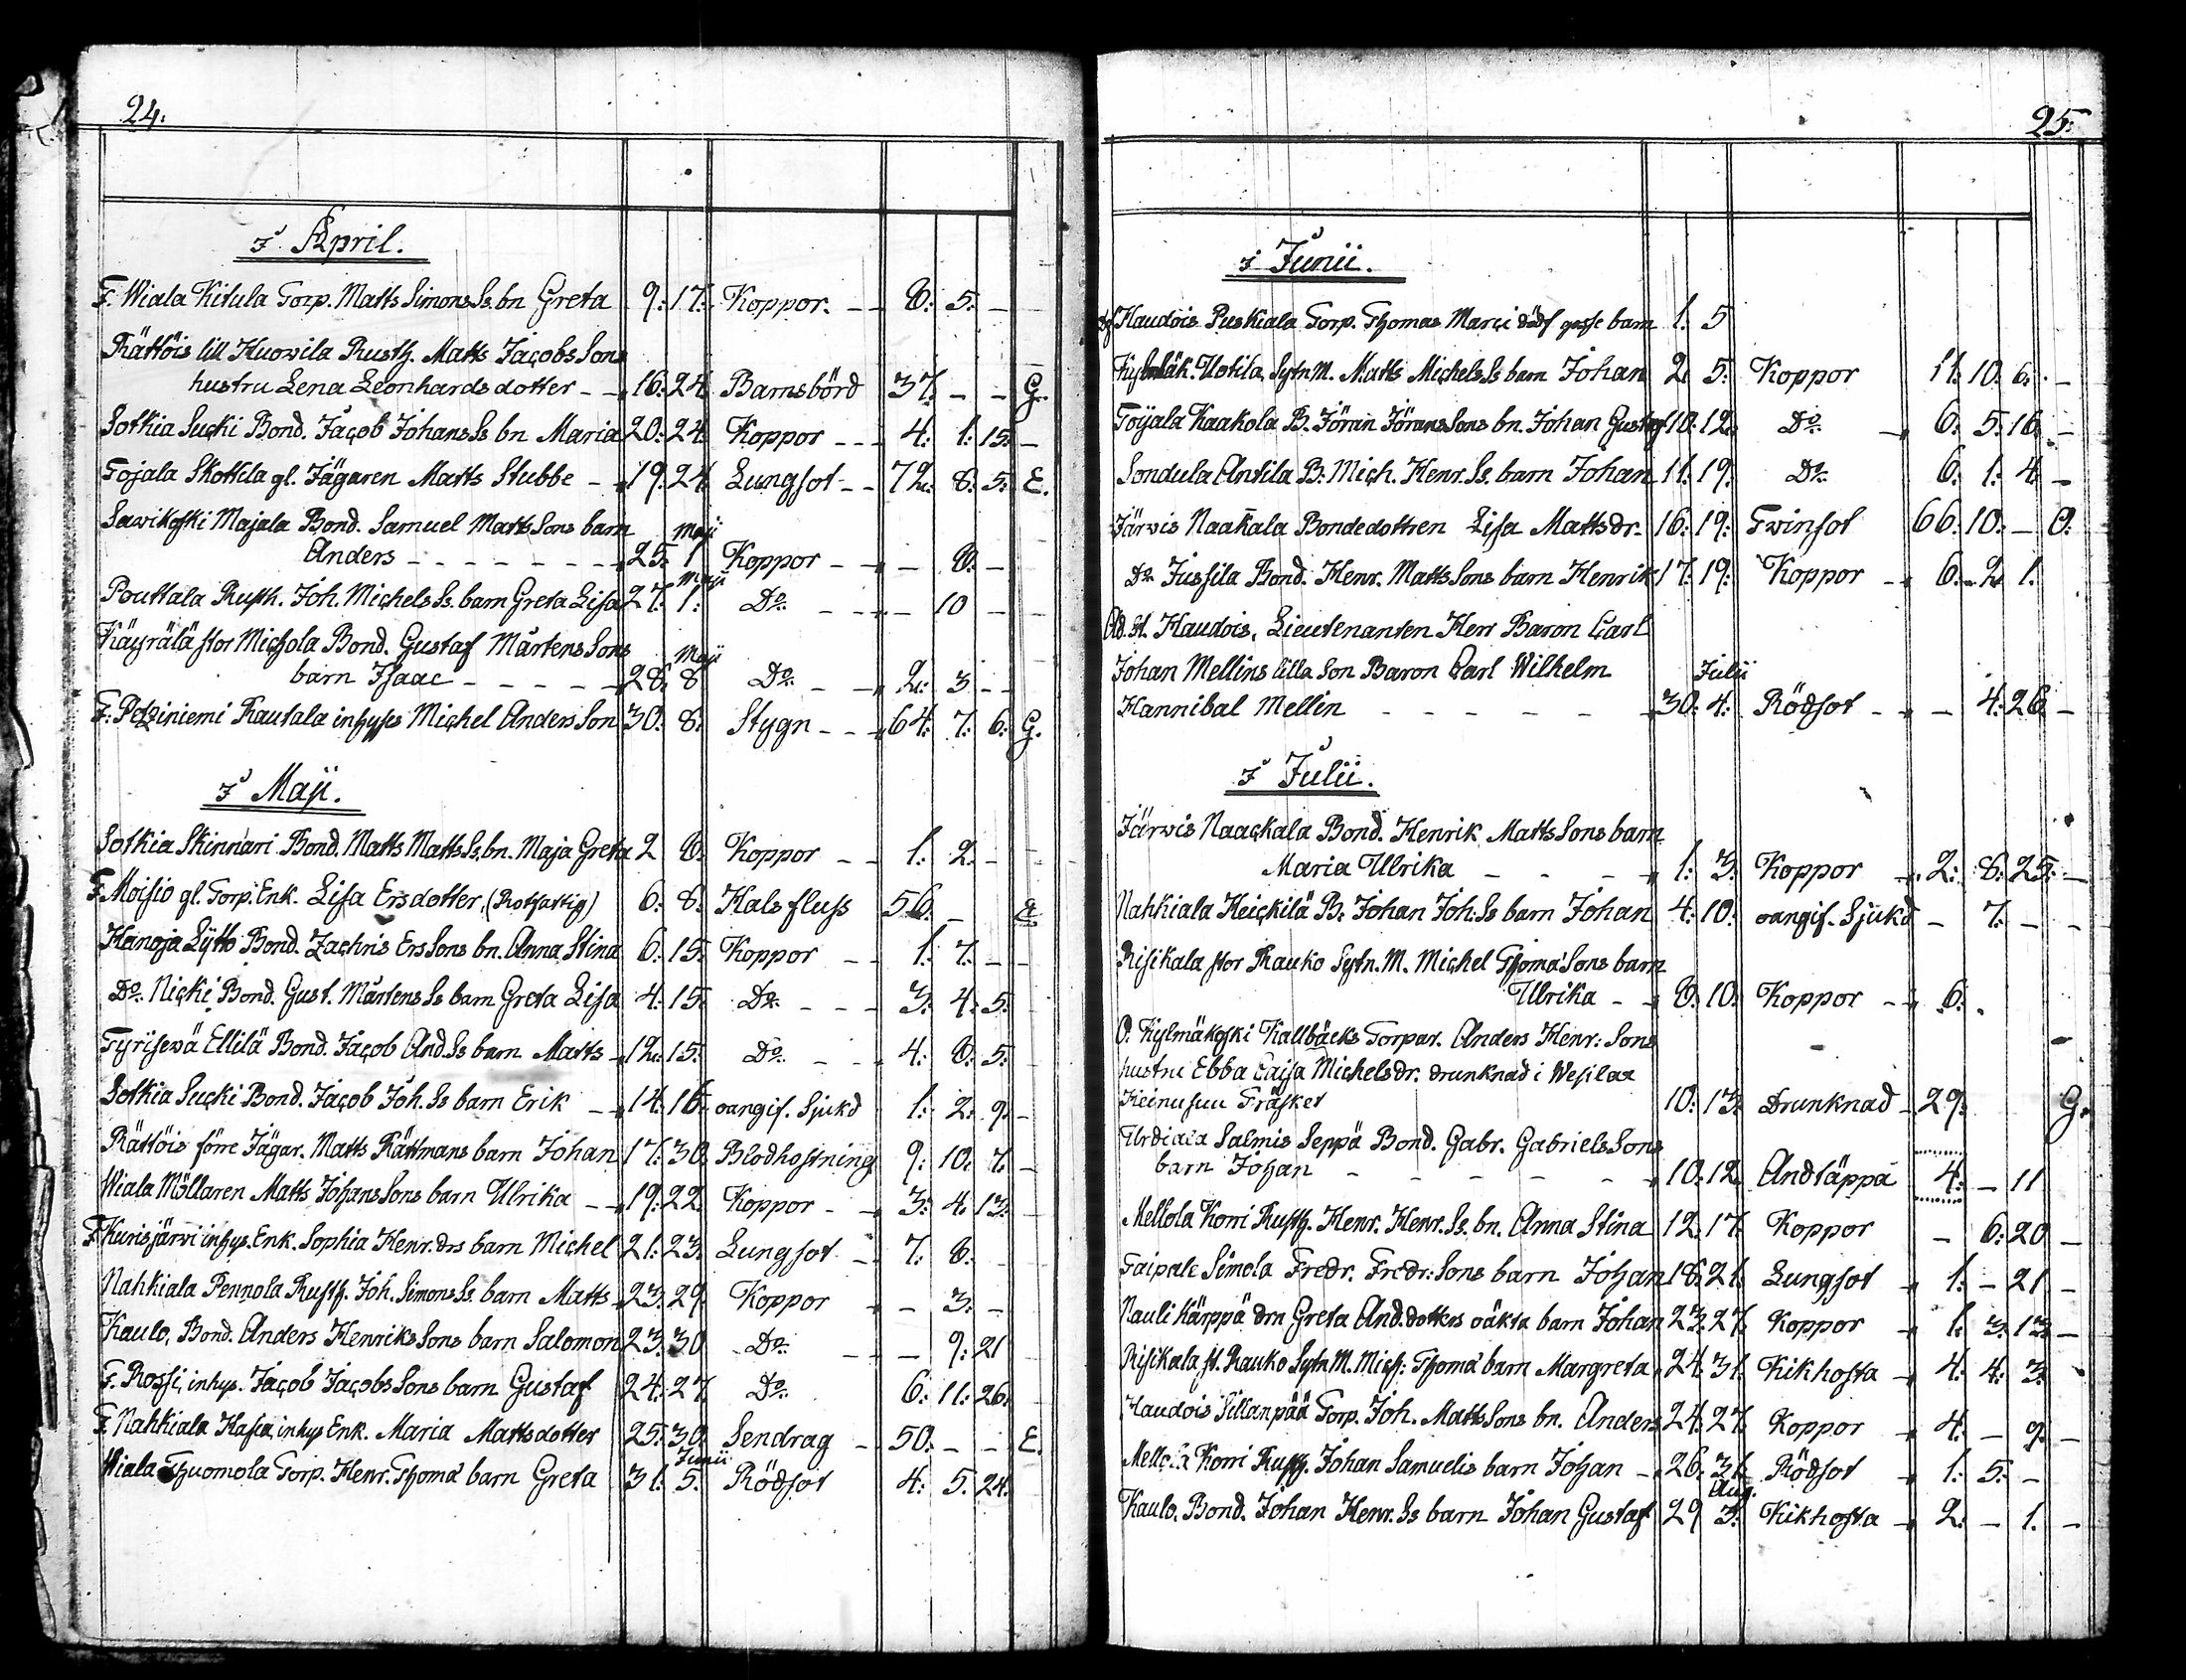 24:
I April.
F. Wiala Kitula Torp. Matts Simons Ss. bn Greta 9: 17: Koppor. 8: 5: —
Rättöis lill Huowila Rusth. Matts Jacobs Sons
hustru Lena Leonhards dotter 16: 24 Barnsbörd 37. — — G.
Sotkia Sucki Bond. Jacob Johans Ss bn Maria 20: 24: Koppor 4: 1: 15: —
Tojala Skottila gl. Jägaren Matts Stubbe 19: 24 Lungsot 72: 8: 5: E.
Sawikoski Majala Bond. Samuel Matts Sons barn
Anders 25: Maji 1 Koppor — 8: —
Pouttala Rusth. Joh. Michels Ss. barn Greta Lisa 27: Maji 1: Do — 10 —
Käyrälä stor Michola Bond. Gustaf Mårtens Sons
barn Isaac 28: Maji 8 Do 2: 3 —
F. Petziniemi Rautala inhyses Michel Anders Son 30: 8: Stygn 64: 7: 6: G.
I Maji.
Sotkia Skinnari Bond. Matts Matts Ss. bn. Maja Greta 2 8: Koppor 1: 2: —
F. Moisio gl. Torp. Enk. Lisa Ersdotter, (Rotfattig) 6: 8: Halsfluss 56: —
Hanoja Lytto Bond. Zachris Ers Sons bn. Anna Stina 6: 15: Koppor 1: 7: —
Do Nicki Bond. Gust. Mårtens Ss barn Greta Lisa 4: 15: Do 3: 4: 5:
Tyrisewä Ellilä Bond. Jacob And. Ss barn Matts 12: 15: Do 4: 8: 5:
Sotkia Sucki Bond. Jacob Joh. Ss barn Erik 14: 16: oangif. Sjukd 1: 2: 9: —
Rättöis förre Jägar. Matts Rättmans barn Johan 17: 30. Blodhostning 9: 10: 7: —
Wiala Möllaren Matts Johans Sons barn Ulrika 19: 22. Koppor 3: 4. 13:
F. Kurisjärwi inhys. Enk. Sophia Henr. drs barn Michel 21: 23: Lungsot 7: 8:
Nahkiala Pennola Rusth. Joh. Simons Ss. barn Matts 23: 29: Koppor — 3: —
Kaulo, Bond. Anders Henriks Sons barn Salomon 23: 30 Do — 9: 21
F. Rossi, inhys. Jacob Jacobs Sons barn Gustaf 24: 27. Do 6: 11: 26:
F. Nahkiala Hasia, inhys Enk. Maria Mattsdotter 25: 30. Sendrag 50: — — E.
Wiala Thuomola Torp. Henr. Thoma' barn Greta 31: Junii 5: Rödsot 4: 5. 24:
25:
i Junii.
Haudois Puskiala Torp. Thomas Marci död gosse barn 1: 5
Uotila, Sytn. M. Matts Michels Ss barn Johan 2 5: Koppor 11: 10: 6: —
Toijala Kaakola B. Jöran Jörans Sons bn. Johan Gustaf 10: 12: Do 6: 5: 16: —
Sondula Antila B. Mich. Henr. Ss. barn Johan 11: 19: Do 6: 1: 4 —
Järwis Naakala Bondedottren Lisa Mattsdr. 16: 19: Twinsot 66: 10: — O:
Do Jussila Bond. Henr. Matts Sons barn Henrik 17: 19: Koppor 6: 2: 1.
Ad. St. Haudois, Lieutenanten Herr Baron Carl
Johan Mellins lilla Son Baron Carl Wilhelm
Hannibal Mellin 30: Julii 4: Rödsot — 4: 26 —
I Julii.
Järwis Naackala Bond. Henrik Matts Sons barn
Maria Ulrika 1: 3: Koppor 2: 8: 25: —
Nahkiala Heickilä B. Johan Joh: Ss barn Johan 4: 10: oangif. Sjukd — 7: — —
Risikala stor Rauko Sytn. M. Michel Thoma' Sons barn
Ulrika 8: 10: Koppor 6:
O. Kylmäkoski Kallbäcks Torpar. Anders Henr: Sons
hustru Ebba Caisa Michelsdr. drunknad i Wesilax
Keinusuu Träsket 10: 13: Drunknad 29: G.
Urdiala Salmis Seppä Bond. Gabr. Gabriels Sons
barn Johan 10: 12. Andtäppa 4: — 11
Mellola Korri Rusth. Henr. Henr. Ss. bn. Anna Stina 12: 17: Koppor — 6: 20 —
Taipale Simola Fredr. Fredr: Sons barn Johan 18: 21: Lungsot 1: — 21 —
Nauli Kärppä drn Greta And. dotters oäkta barn Johan 23: 27: Koppor 1: 3: 13: —
Risikala st. Rauko Sytn. M. Mich: Thoma' barn Margreta 24: 31: Kikhosta 4: 4: 3:
Haudois Sillanpää Torp. Joh. Matts Sons bn. Anders 24: 27: Koppor 4: — 9: —
Mellola Korri Rusth. Johan Samuelis barn Johan 26: 31. Rödsot 1: 5: —
Kaulo. Bond. Johan Henr. Ss barn Johan Gustaf 29 Aug. 3: Kikhosta 2: — 1. —